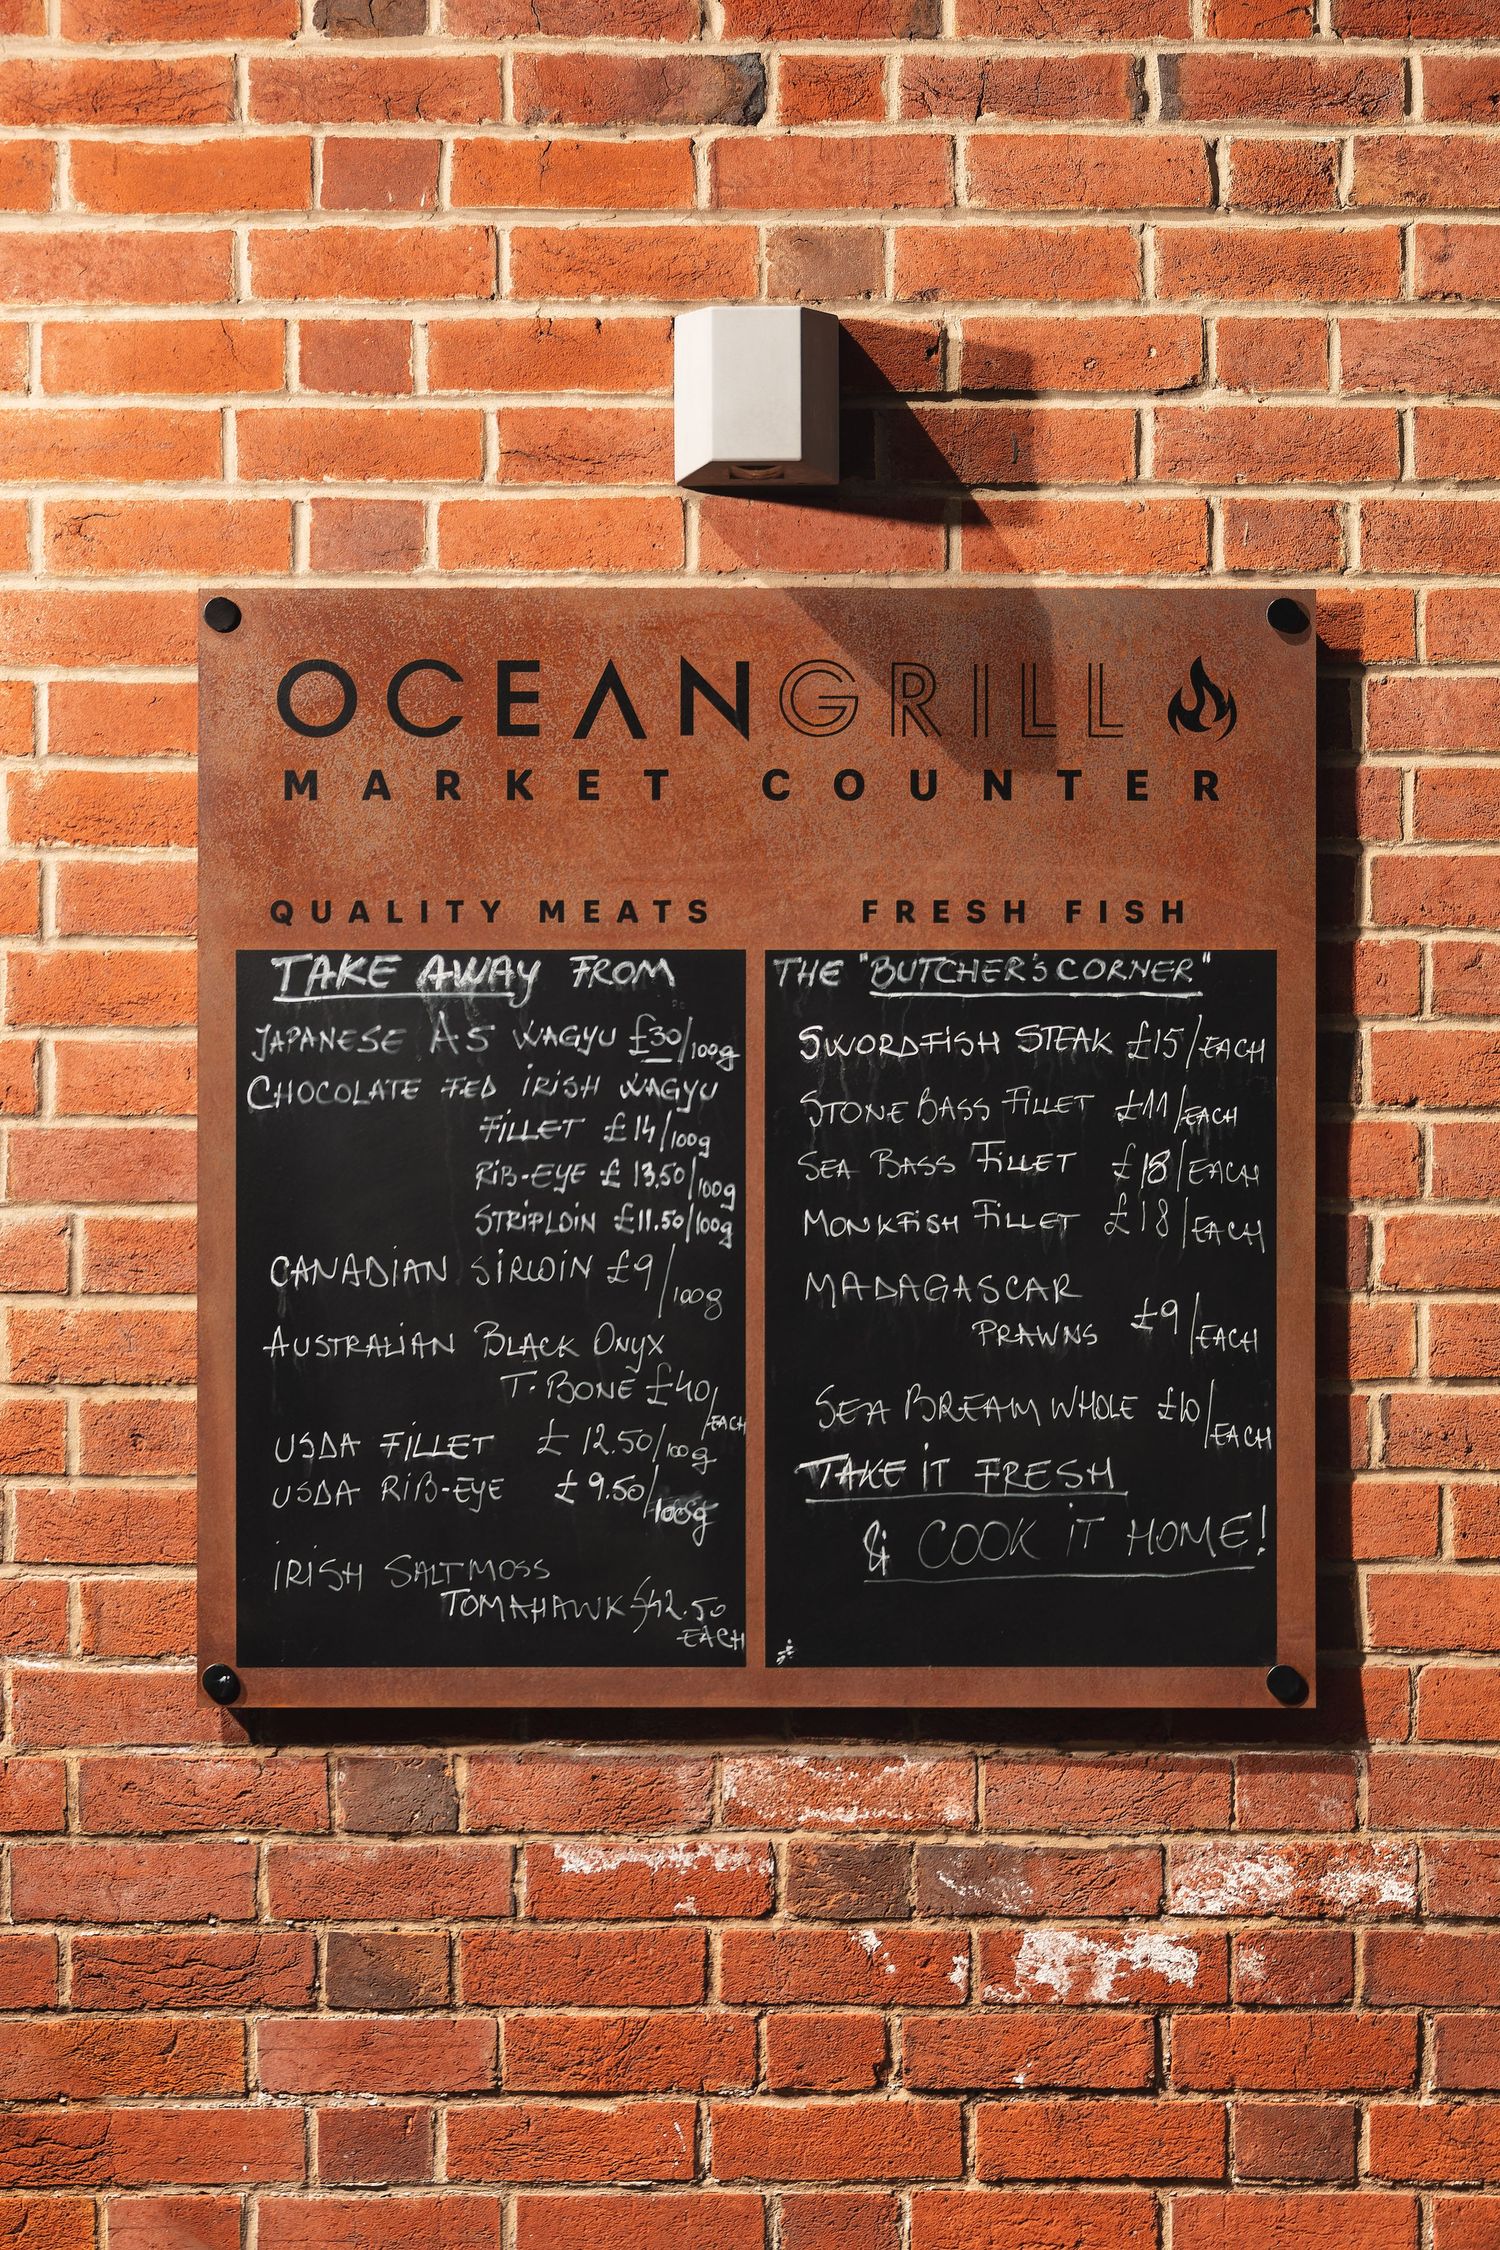 OCEANGRILL
MARKET COUNTER
QUALITY MEATS
TAKE AWAY FROM
JAPANESE A5 WAGYU £30/100g
CHOCOLATE FED IRISH WAGYU
FILLET £14/100g
RIB-EYE £13.50/100g
STRIPLOIN £11.50/100g
CANADIAN SIRLOIN £9/100g
AUSTRALIAN BLACK ONYX
T-BONE £40/EACH
USDA FILLET £12.50/100g
USDA RIB-EYE £9.50/100g
IRISH SALTMOSS
TOMAHAWK £42.50
EACH
FRESH FISH
THE "BUTCHER'S CORNER"
SWORDFISH STEAK £15/EACH
STONE BASS FILLET £11/EACH
SEA BASS FILLET £18/EACH
MONKFISH FILLET £18/EACH
MADAGASCAR
PRAWNS £9/EACH
SEA BREAM WHOLE £10/EACH
TAKE IT FRESH
& COOK IT HOME!